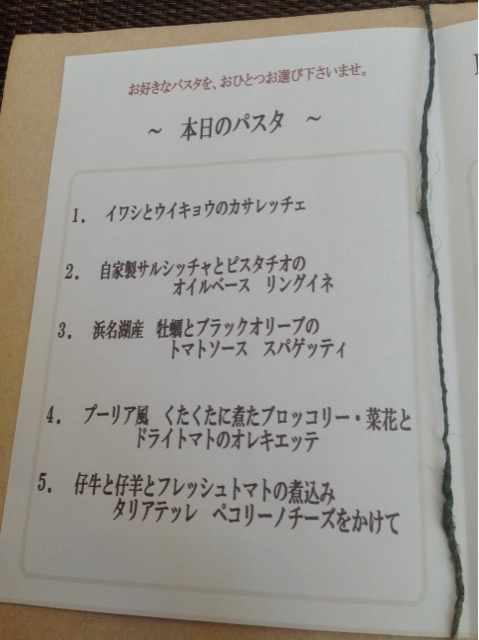 お好きなパスタを、おひとつお選び下さいませ。
～ 本日のパスタ ～
1. イワシとウイキョウのカサレッチェ
2. 自家製サルシッチャとピスタチオの
オイルベース リングイネ
3. 浜名湖産 牡蠣とブラックオリーブの
トマトソース スパゲッティ
4. プーリア風 くたくたに煮たブロッコリー・菜花と
ドライトマトのオレキエッテ
5. 仔牛と仔羊とフレッシュトマトの煮込み
タリアテッレ ペコリーノチーズをかけて